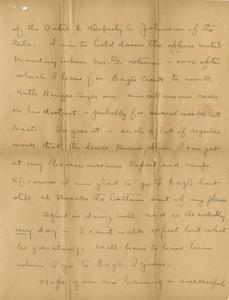 of the Outlet & Deputy S. Johnson of the
Gila. I am to hold down this office until
Monday when Mr. G. returns – soon after
which I leave for Eagle Creek to work
with Ranger Dyer on miscellaneous cases
on his district – probably for several weeks at
least. To goes at – such a lot of regular
work that the deuce knows when I can get
at my Reconnaissance Report and maps.
Of course I am glad to go to Eagle but
still it knocks the bottom out of my plans
Spud is doing well and is decidedly
my dog – I can't walk 10 feet but what
he goes along. Will have to leave him
when I go to Eagle I guess.
Hope you are having a successful